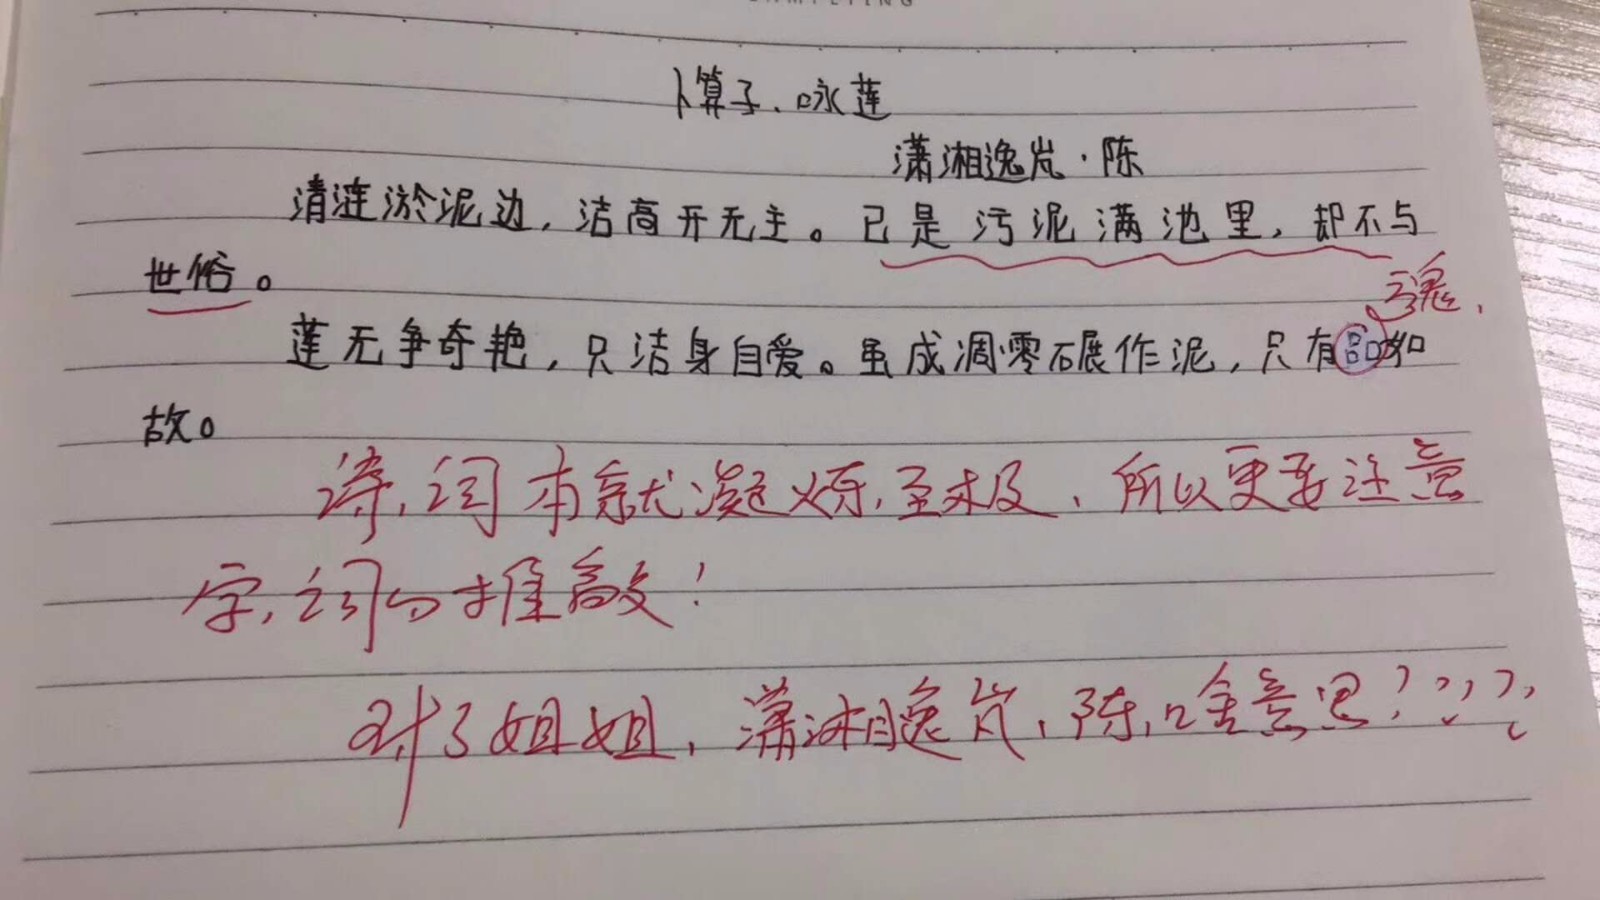 卜算子、咏莲
潇湘逸岚·陈
清涟淤泥边，洁高开无主。已是污泥满池里，却不与
世俗。
魂
莲无争奇艳，只洁身自爱。虽成凋零碾作泥，只有品如
故。
诗，词本就凝炼，至极、所以更要注意
字，词的推敲！
对了姐姐，潇湘逸岚，陈，啥意思？？？？